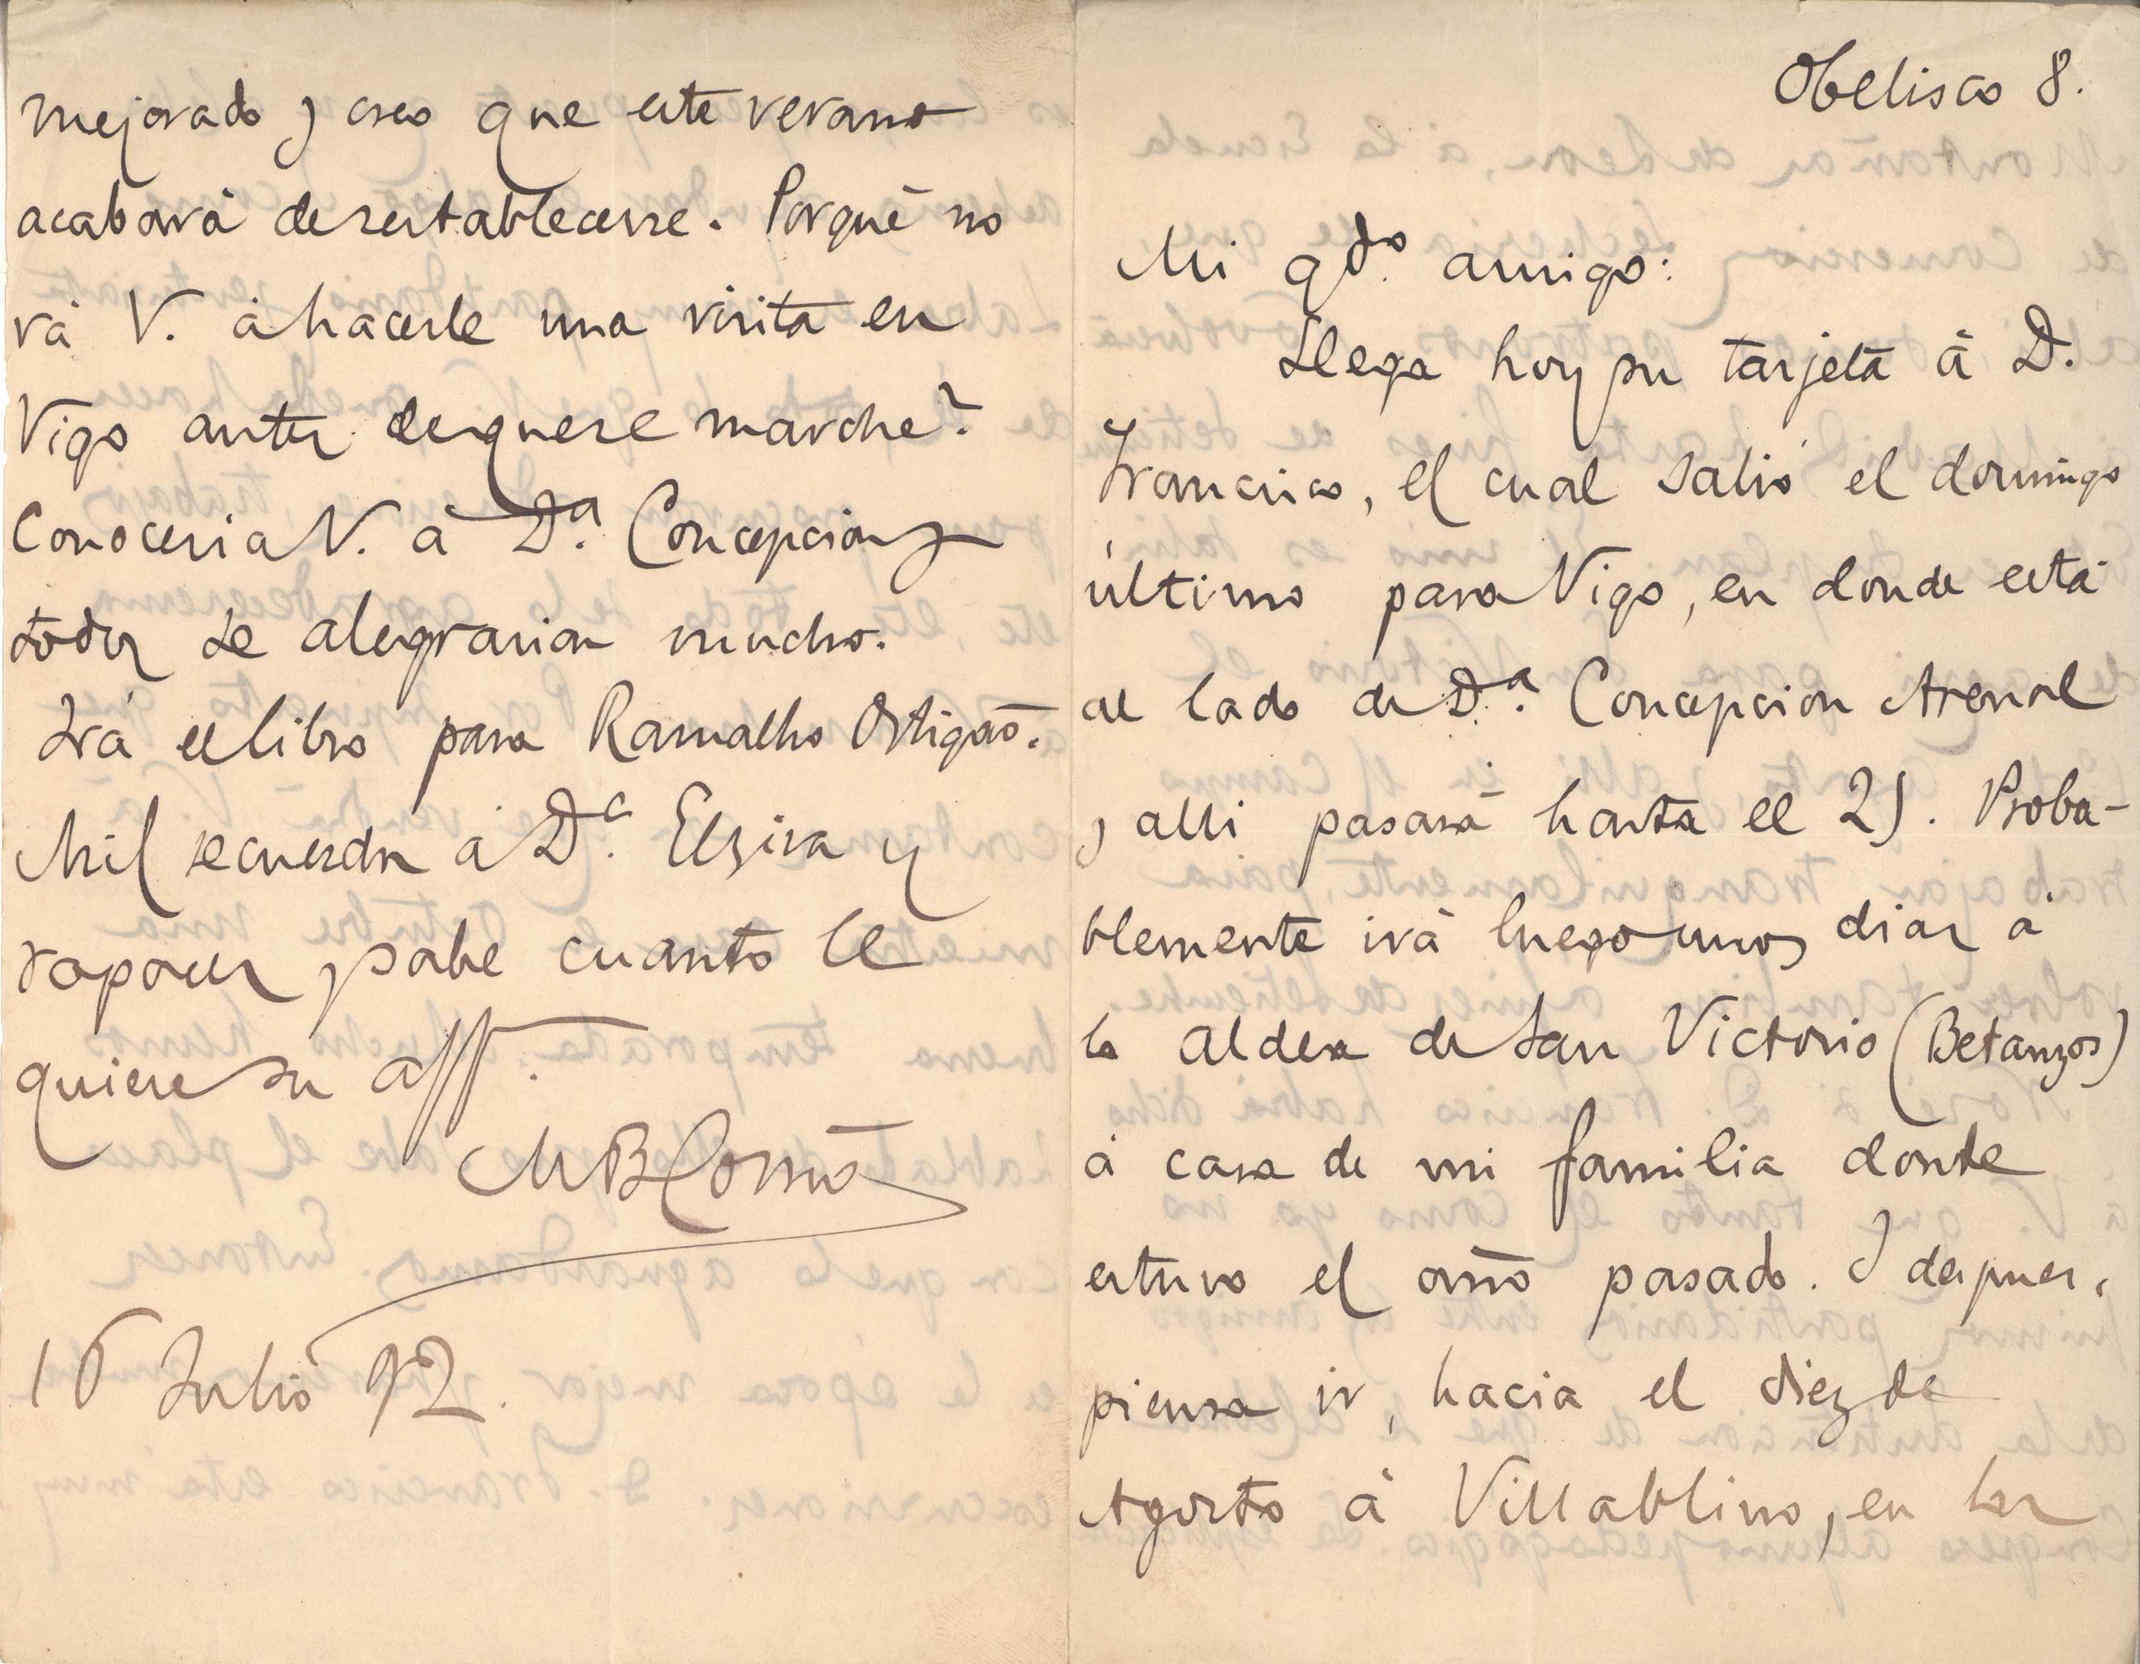 Obelisco 8.
Mi qdo. amigo:
Llega hoy su tarjeta á D.
Francisco, el cual salió el domingo
último para Vigo, en donde está
al lado de Dª. Concepcion Arenal
y alli pasará hasta el 25. Proba-
blemente irá luego unos dias á
la aldea de San Victorio (Betanzos)
á casa de mi familia donde
estuvo el año pasado. Y despues,
piensa ir, hacia el diez de
Agosto á Villablino, en las
mejorado y creo que este verano
acabará de restablecerse. Porqué no
vá V. á hacerle una visita en
Vigo antes de que se marche?
Conoceria V. á Dª. Concepcion y
todos se alegrarian mucho.
Irá el libro para Ramalho Ortigaõ.
Mil recuerdos á Dª. Elzira y
rapaces y sabe cuanto le
quiere su aff.
MBCossío
16 Julio 92.